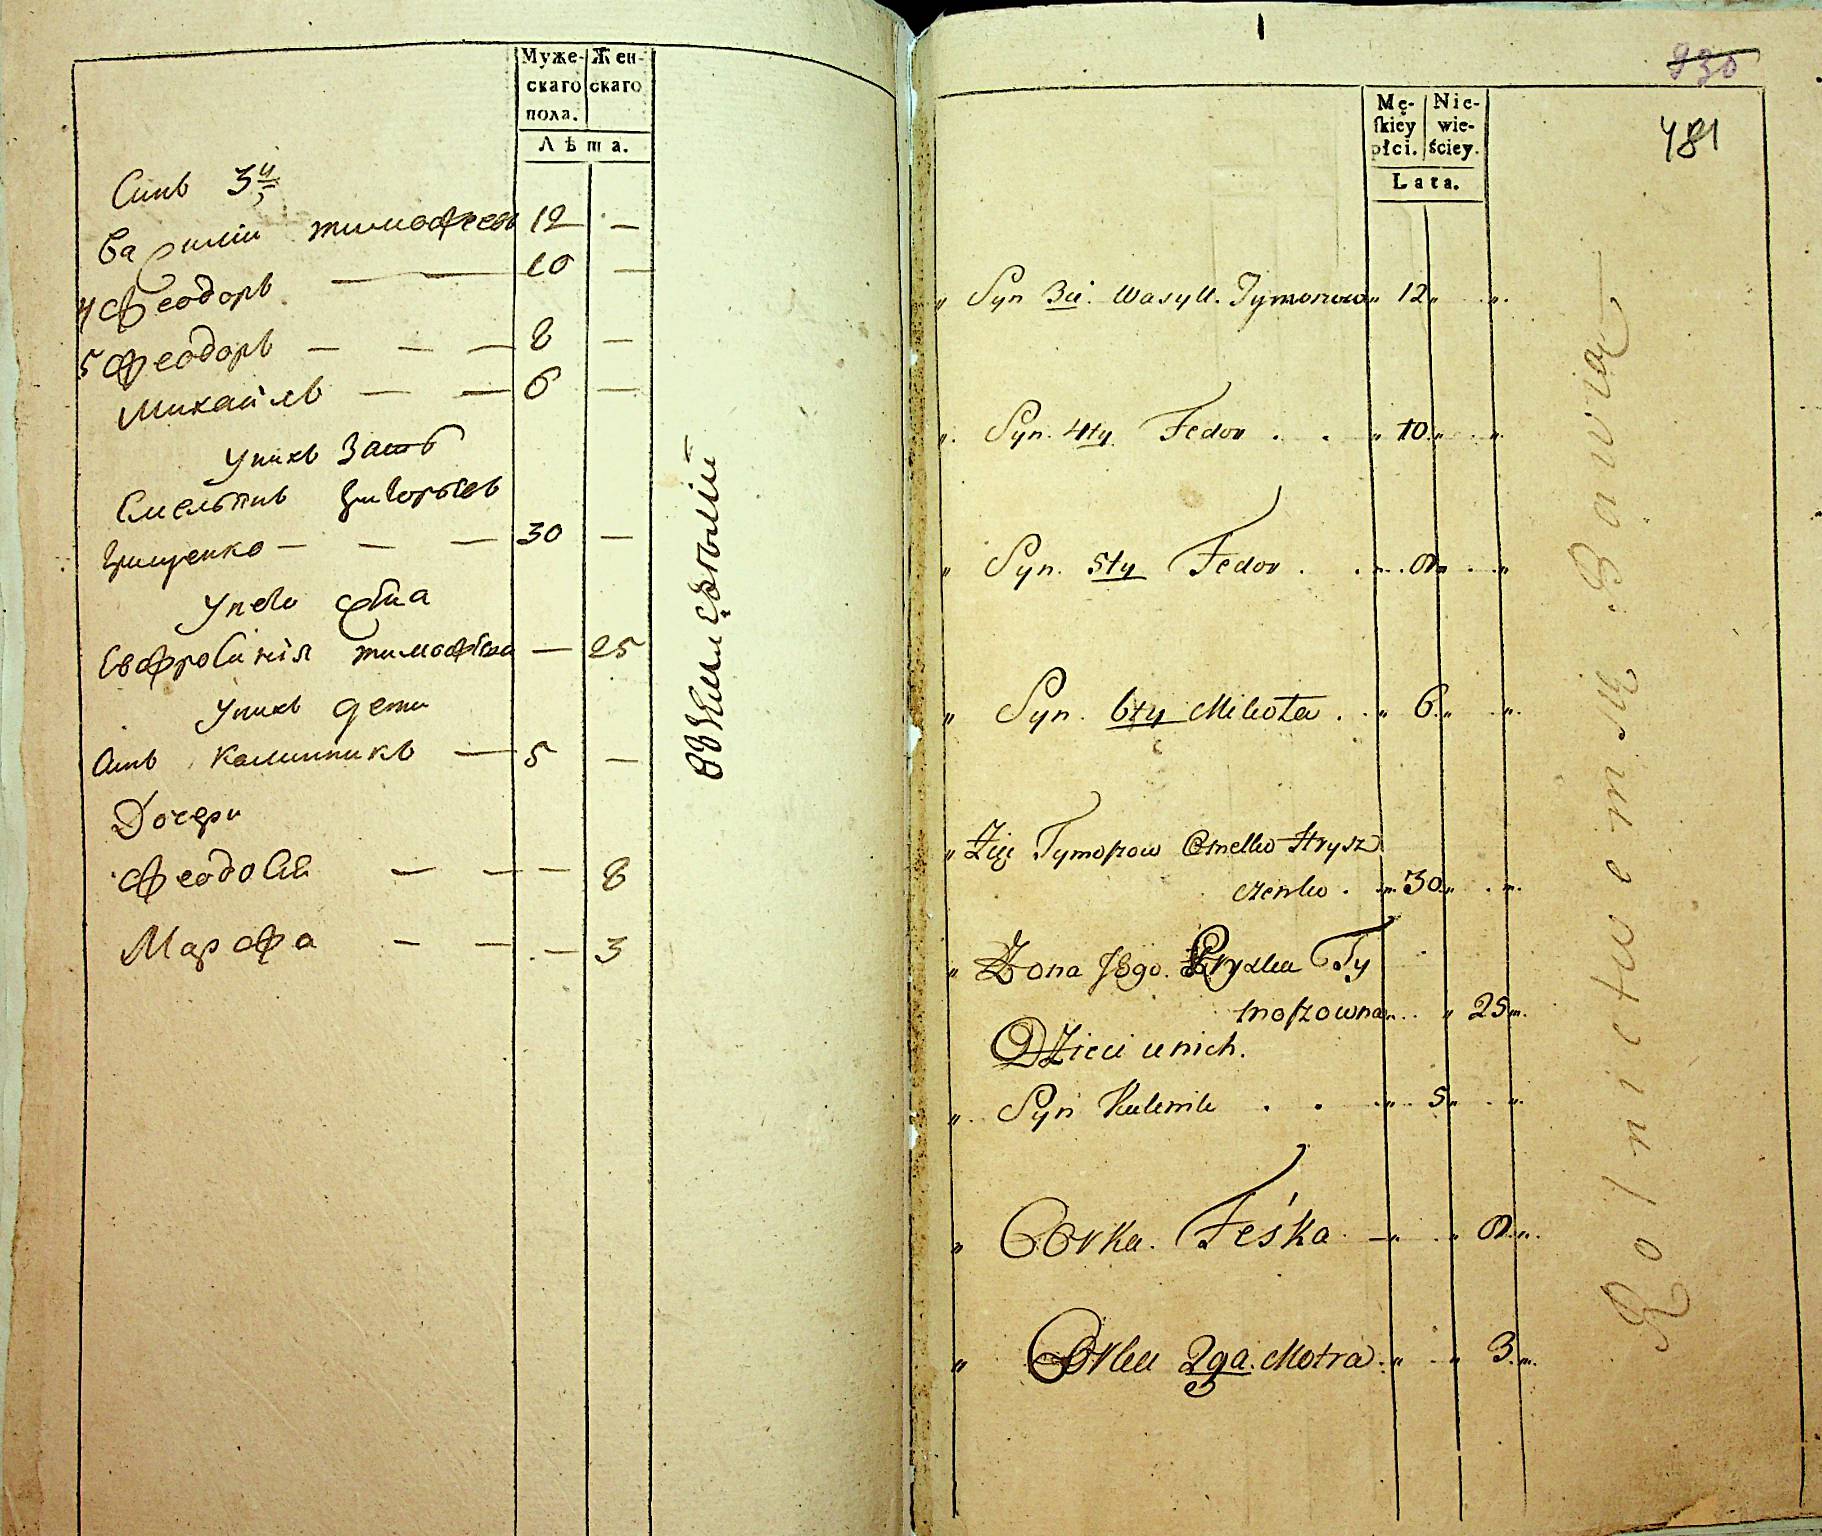 Муже-
скаго
пола.
Жен-
скаго
Лѣта.
Синъ 3й
Василій тимофеевъ 12 —
4 Феодоръ — 10 —
5 Феодоръ — — — 8 —
Михаилъ — — 6 —
Унихъ Зать
Емельянъ Григорьевъ
Грищенко — — — 30 —
Унево жена
Евфросинія тимофѣева — 25
Унихъ дети
Синъ Калинникъ — 5 —
Дочери
Феодосія — — — 8
Марфа — — — 3
930
481
Mę-
skiey
płci.
Nie-
wie-
ściey.
Lata.
„ Syn 3ci. Wasyll. Tymoszow „ 12 „ „
„ Syn. 4ty Fedor . . „ 10 „ „
„ Syn. 5ty Fedor . . „ 8 „ „
„ Syn. 6ty Mikita . . „ 6 „ „
„ Zięć Tymoszow Omelko Hrysz
czenko . „ 30 „ „
„ Żona Jego. Pryska Ty
moszowna „ „ 25 „
Dzieci unich.
„ Syn Kulenik . . „ 5 „ „
„ Corka. Feśka — „ „ 8 „
„ Corka 2ga. Motra „ „ 3 „
Rolnictwem się Bawią